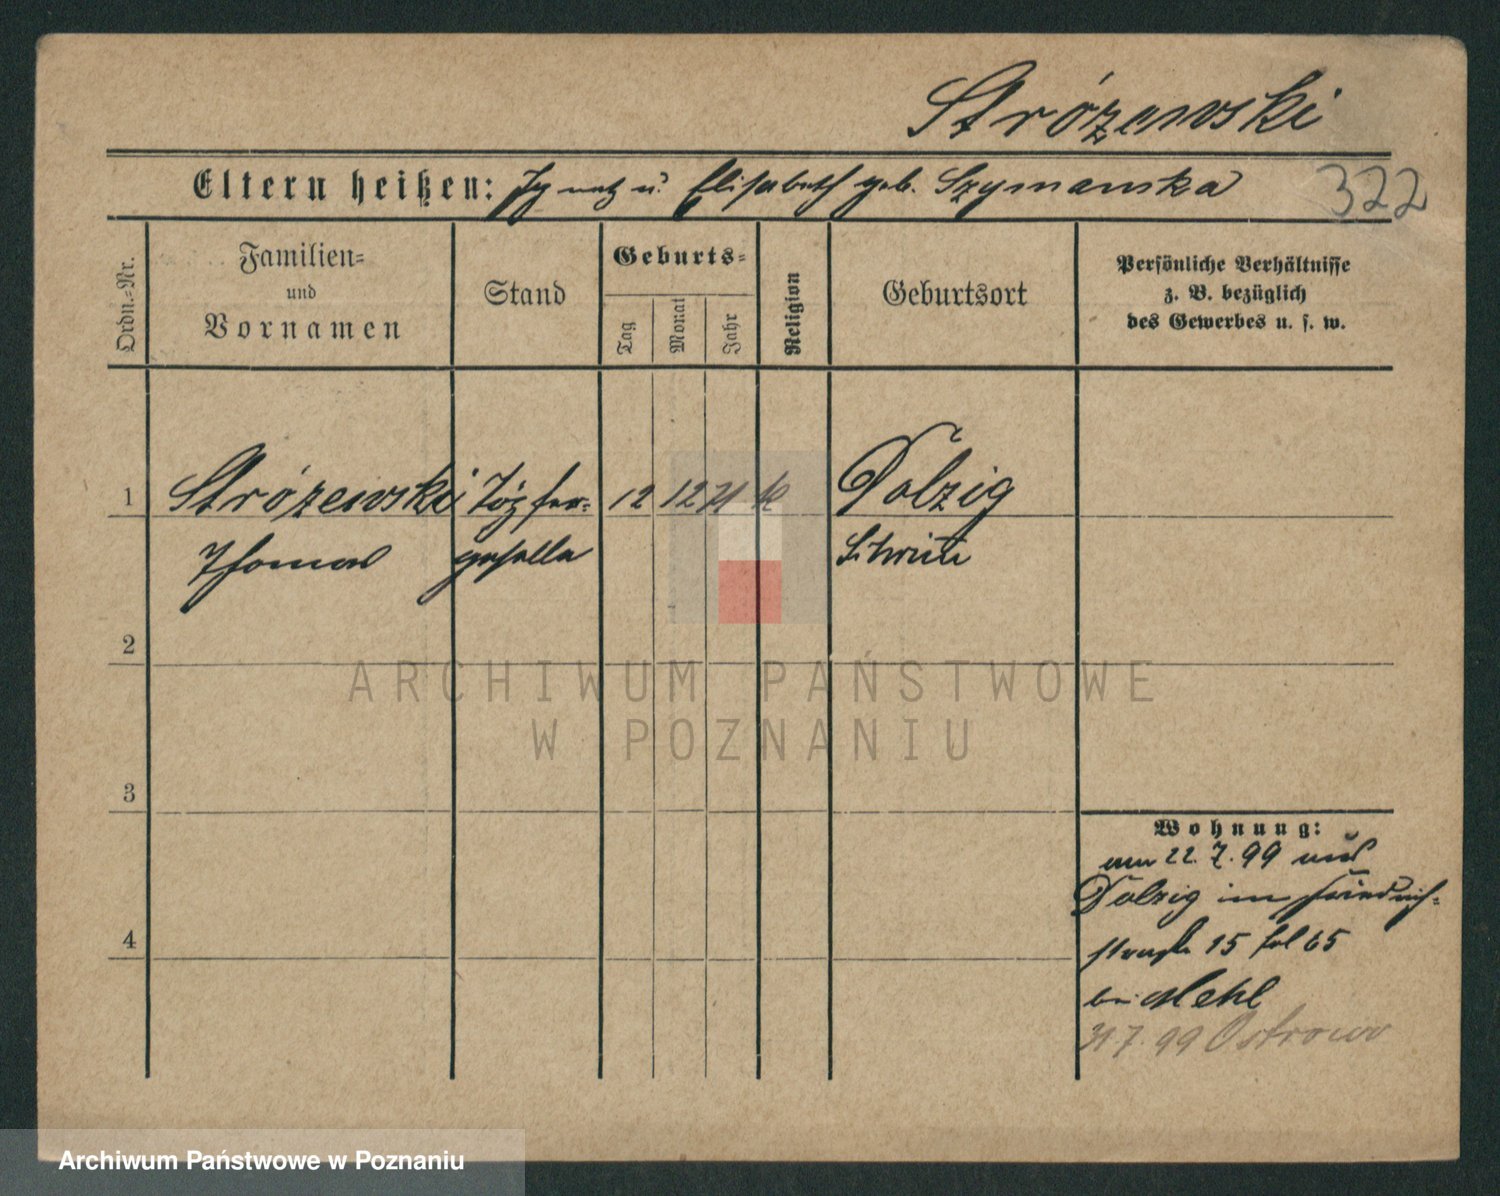 Strózewski
Eltern heißen: Ignatz u. Elisabeth geb. Szymanska
322
Ordn.=Nr.
Familien=
und
Vornamen
Stand
Geburts=
Tag
Monat
Jahr
Religion
Geburtsort
Persönliche Verhältnisse
z. B. bezüglich
des Gewerbes u. s. w.
1 Strózewski Töpfer= 12 12 71 k Dolzig
Thomas geselle Schrimm
2
3
4
ARCHIWUM PAŃSTWOWE
W POZNANIU
Wohnung:
am 22.7.99 aus
Dolzig in Friedrich=
straße 15 65
bei Mehl
31 7. 99 Ostrowo
Archiwum Państwowe w Poznaniu